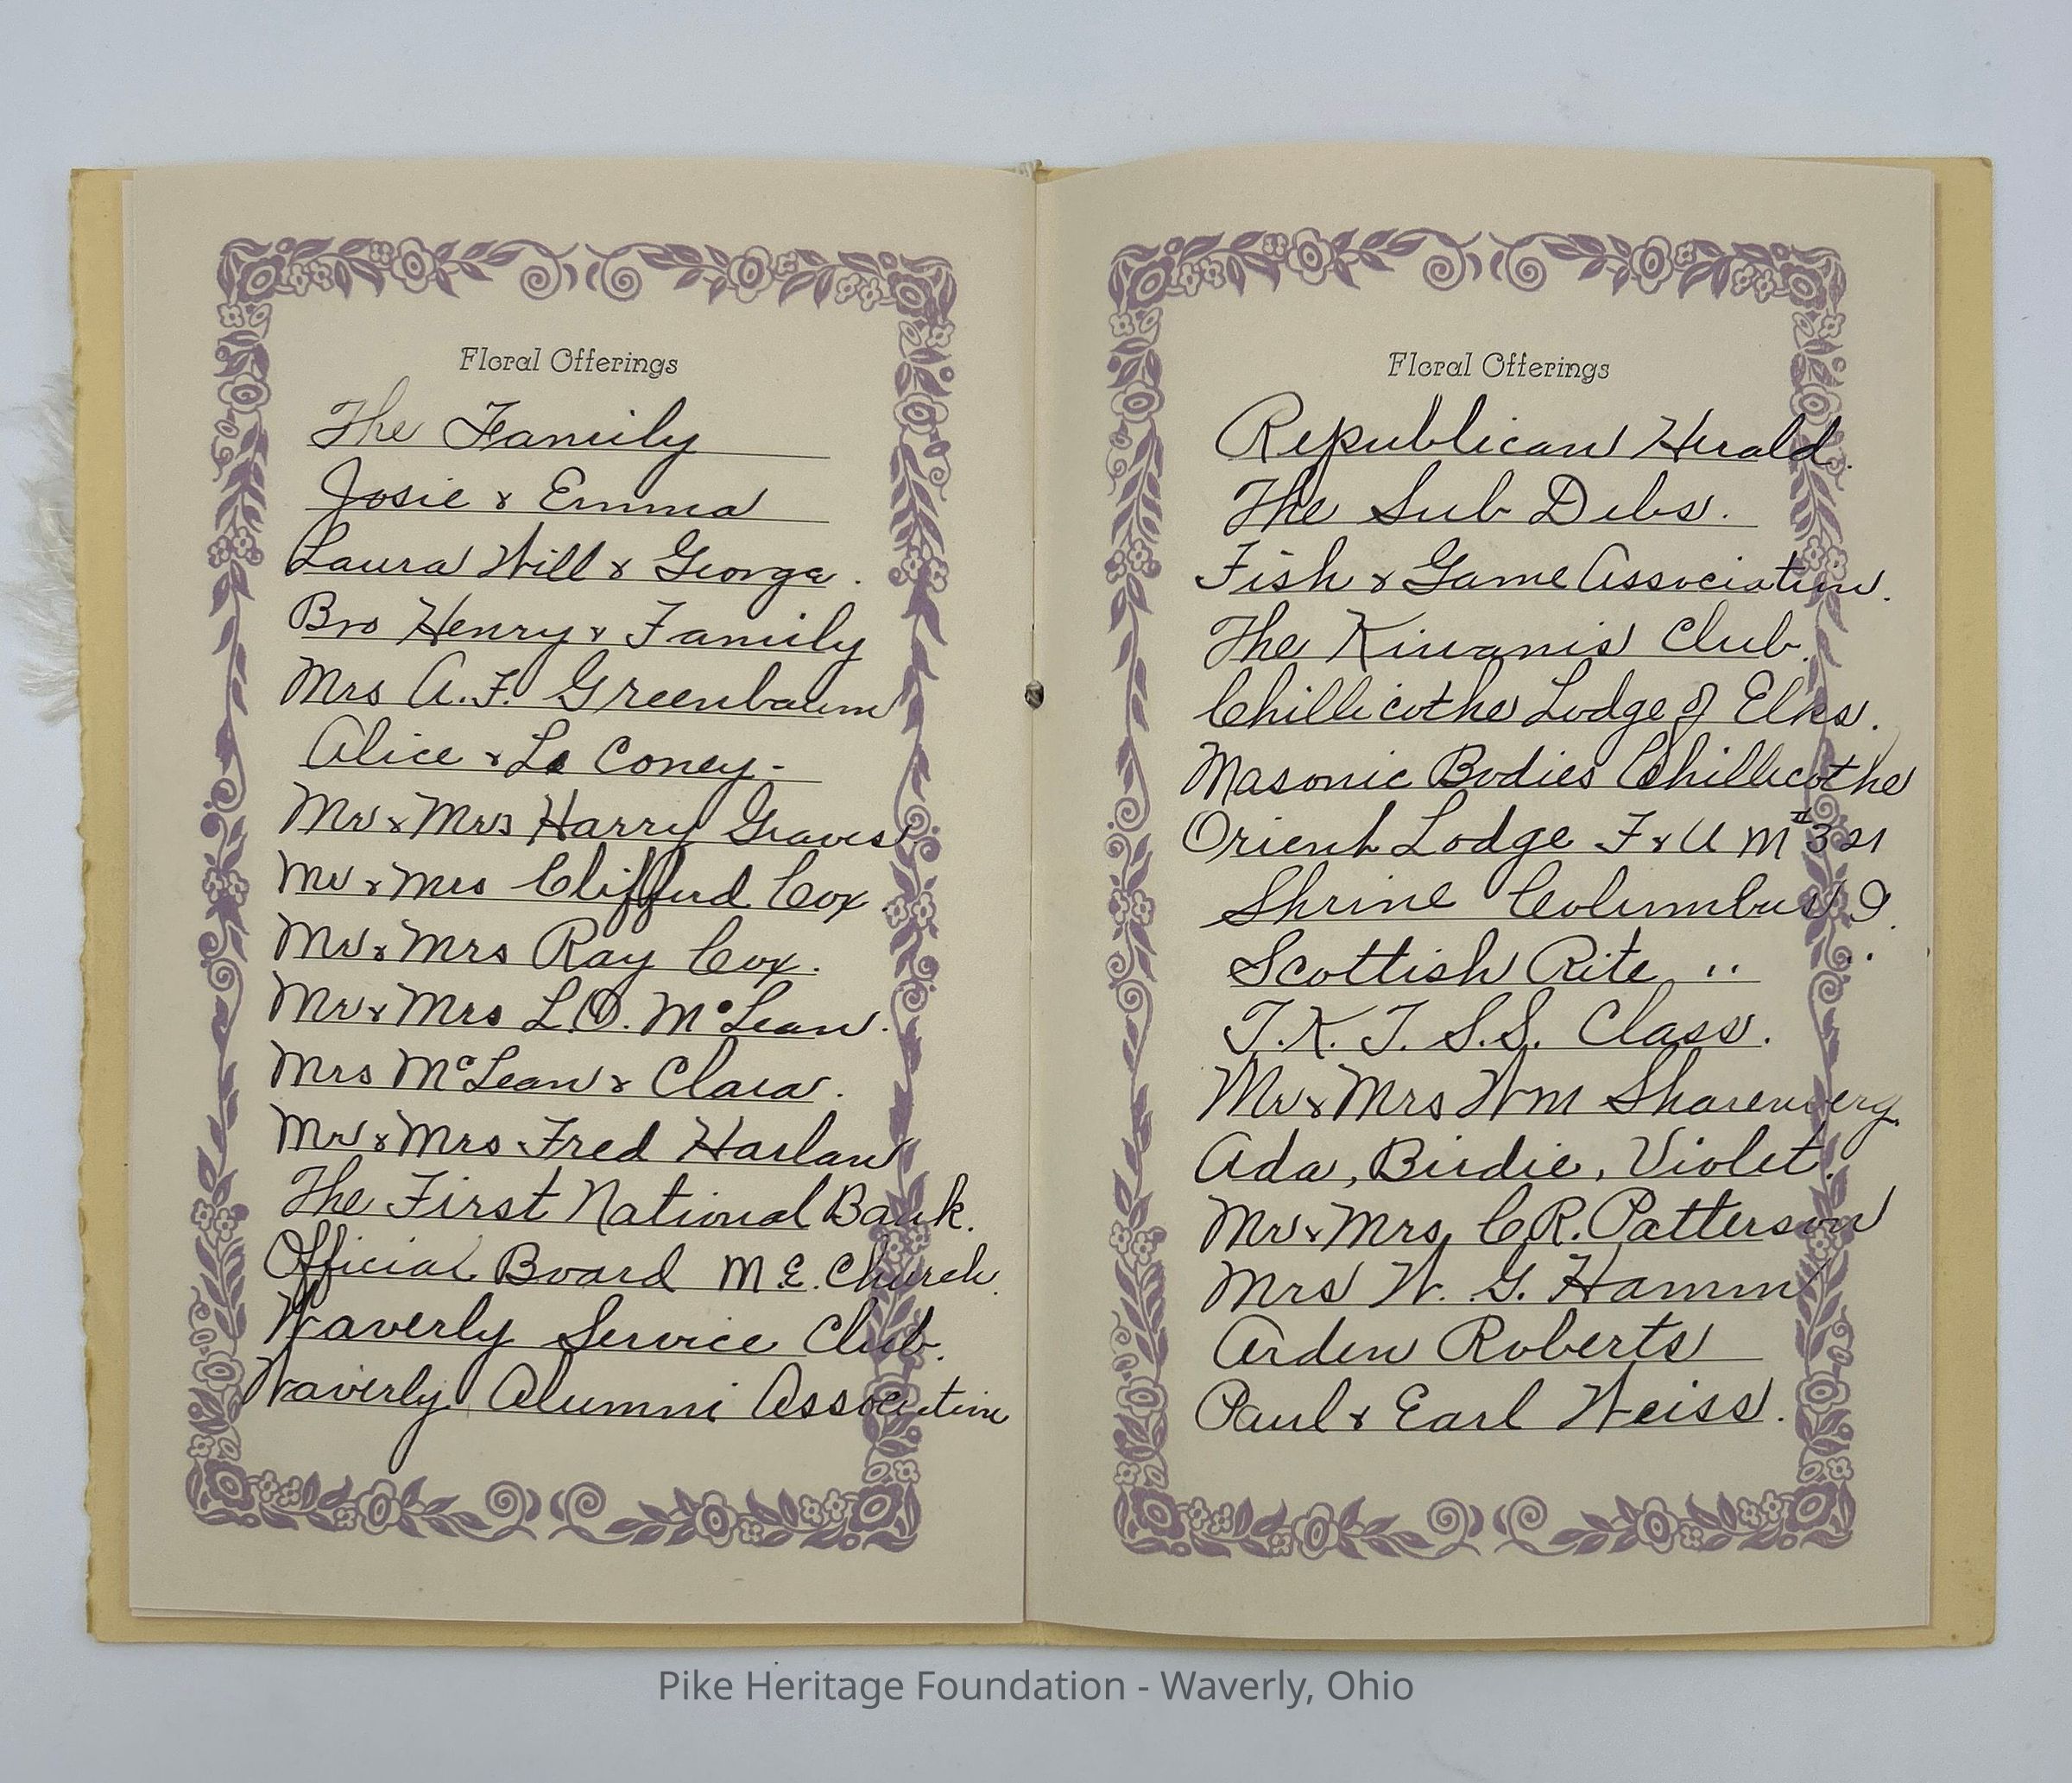 Floral Offerings
The Family
Josie & Emma
Laura Will & George.
Bro Henry & Family
Mrs A.F. Greenbaum
Alice & La Coney -
Mr & Mrs Harry Graves
Mr & Mrs Clifford Cox.
Mr & Mrs Ray Cox.
Mr & Mrs L.O. McLean.
Mrs McLean & Clara.
Mr & Mrs Fred Harlan
The First National Bank.
Official Board M.E. Church.
Waverly Service Club.
Waverly Alumni Association
Floral Offerings
Republican Herald.
The Sub Debs.
Fish & Game Association.
The Kiwanis Club.
Chillicothe Lodge of Elks.
Masonic Bodies Chillicothe
Orient Lodge F & A M #321
Shrine Columbus O.
Scottish Rite " "
T.K.T. S.S. Class.
Mr & Mrs Wm Sharenberg.
Ada, Birdie, Violet.
Mr & Mrs C.R. Patterson
Mrs W. G. Hamm
Arden Roberts
Paul & Earl Weiss.
Pike Heritage Foundation - Waverly, Ohio